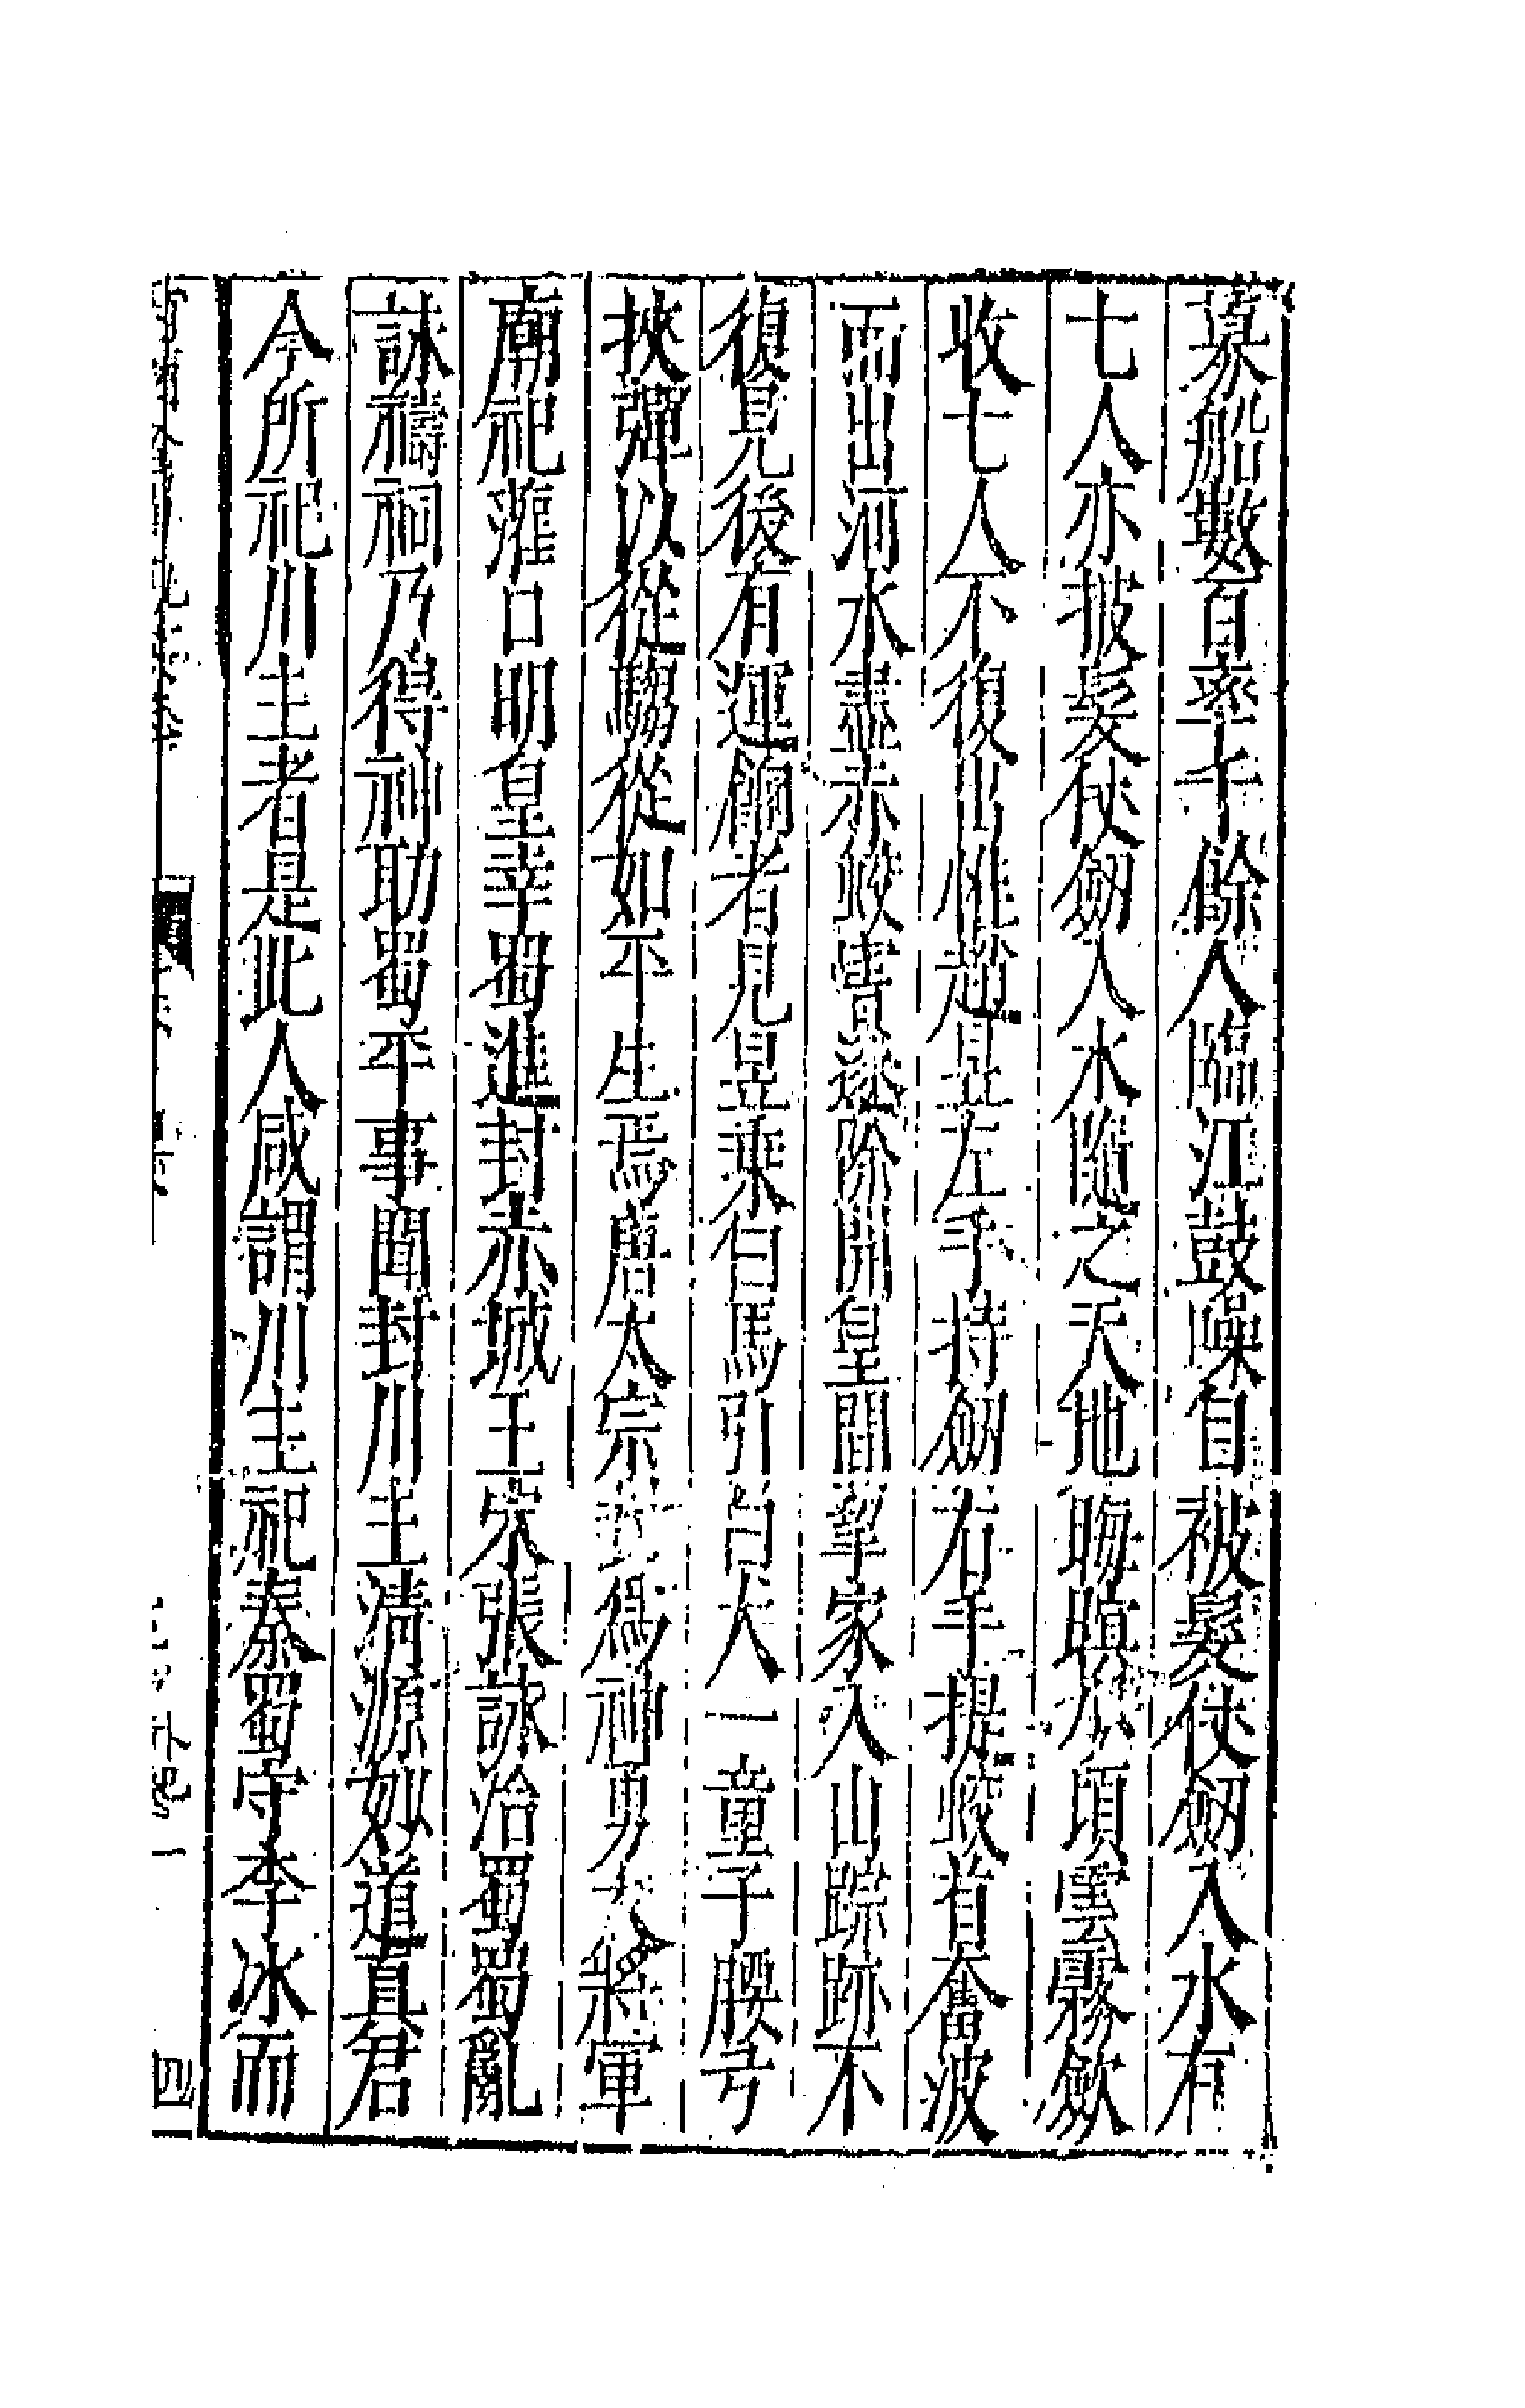 募船數百率千餘人臨江鼓噪自被髮仗劒入水有
七人亦披髮仗劒入水隨之天地晦暝少頃雲霧歛
收七人不復出惟趙昱左手持劒右手提蛟首奮波
而出河水盡赤蛟害遂除開皇間挈家入山踪跡不
復見後有運餉者見昱乘白馬引白犬一童子腰弓
挾彈以從騶從如平生焉唐太宗封爲神勇大將軍
廟祀灌口明皇幸蜀進封赤城王宋張詠治蜀蜀亂
詠禱祠乃得神助蜀平事聞封川主清源妙道真君
今所祀川主者是此人咸謂川主祀秦蜀守李冰而
四